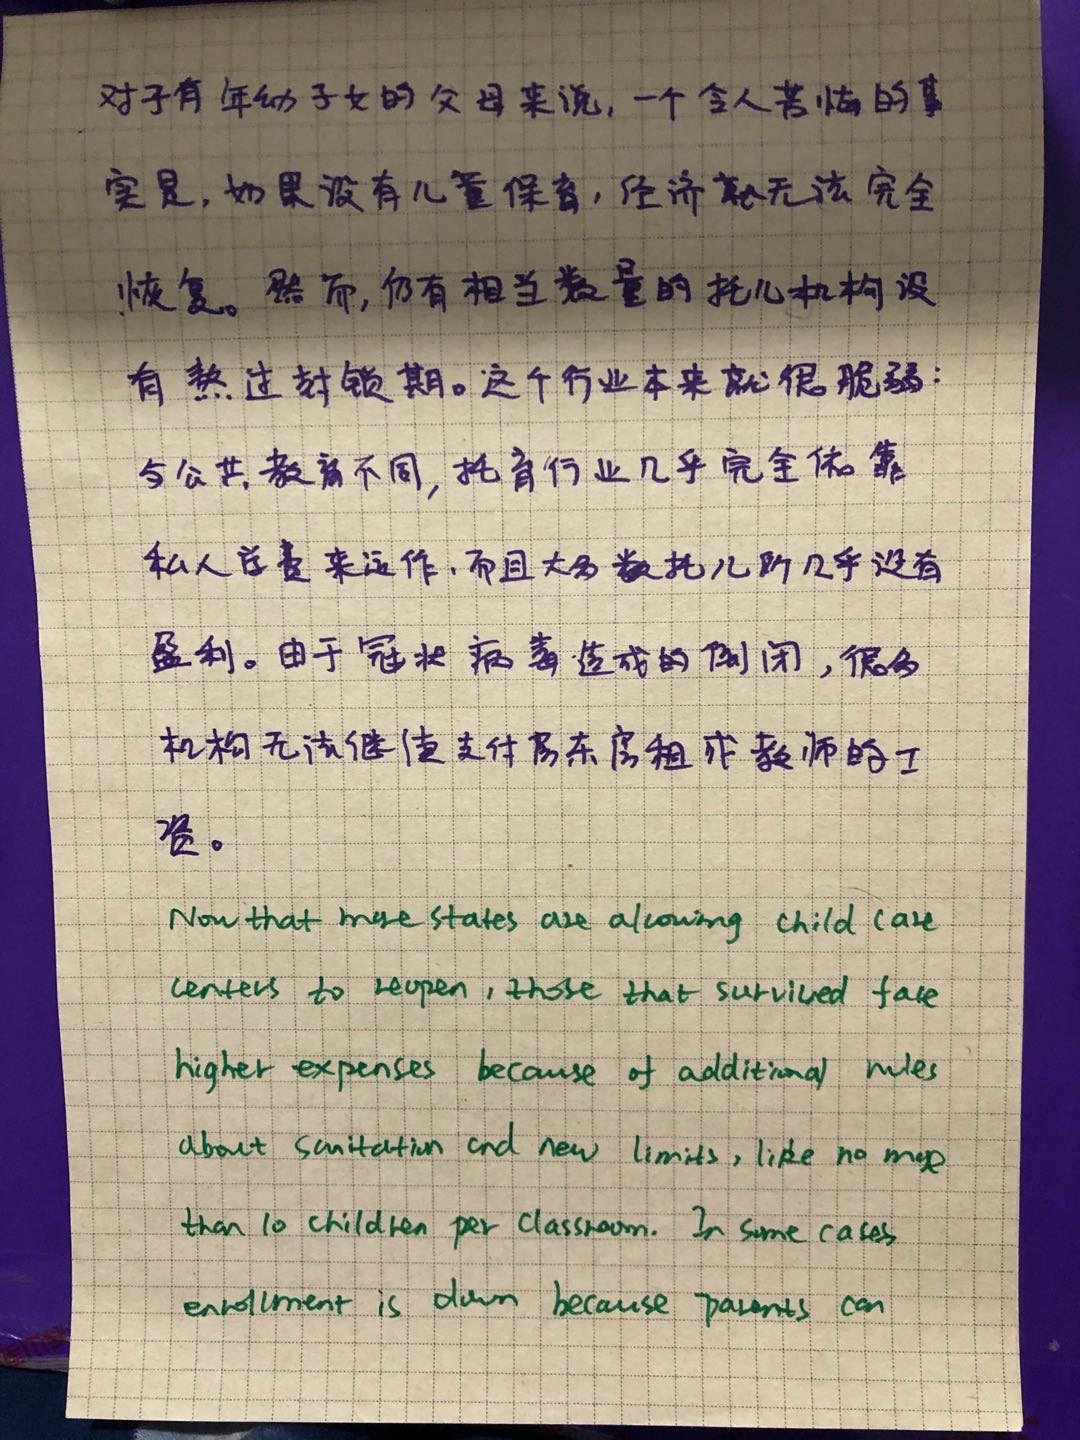 对于有年幼子女的父母来说，一个令人苦恼的事
实是，如果没有儿童保育，经济就无法完全
恢复。然而，仍有相当数量的托儿机构没
有熬过封锁期。这个行业本来就很脆弱：
与公共教育不同，托育行业几乎完全依靠
私人学费来运作，而且大多数托儿所几乎没有
盈利。由于冠状病毒造成的倒闭，很多
机构无法继续支付房东房租或教师的工
资。
Now that more states are allowing child care
centers to reopen, those that survived face
higher expenses because of additional rules
about sanitation and new limits, like no more
than 10 children per classroom. In some cases
enrollment is down because parents can